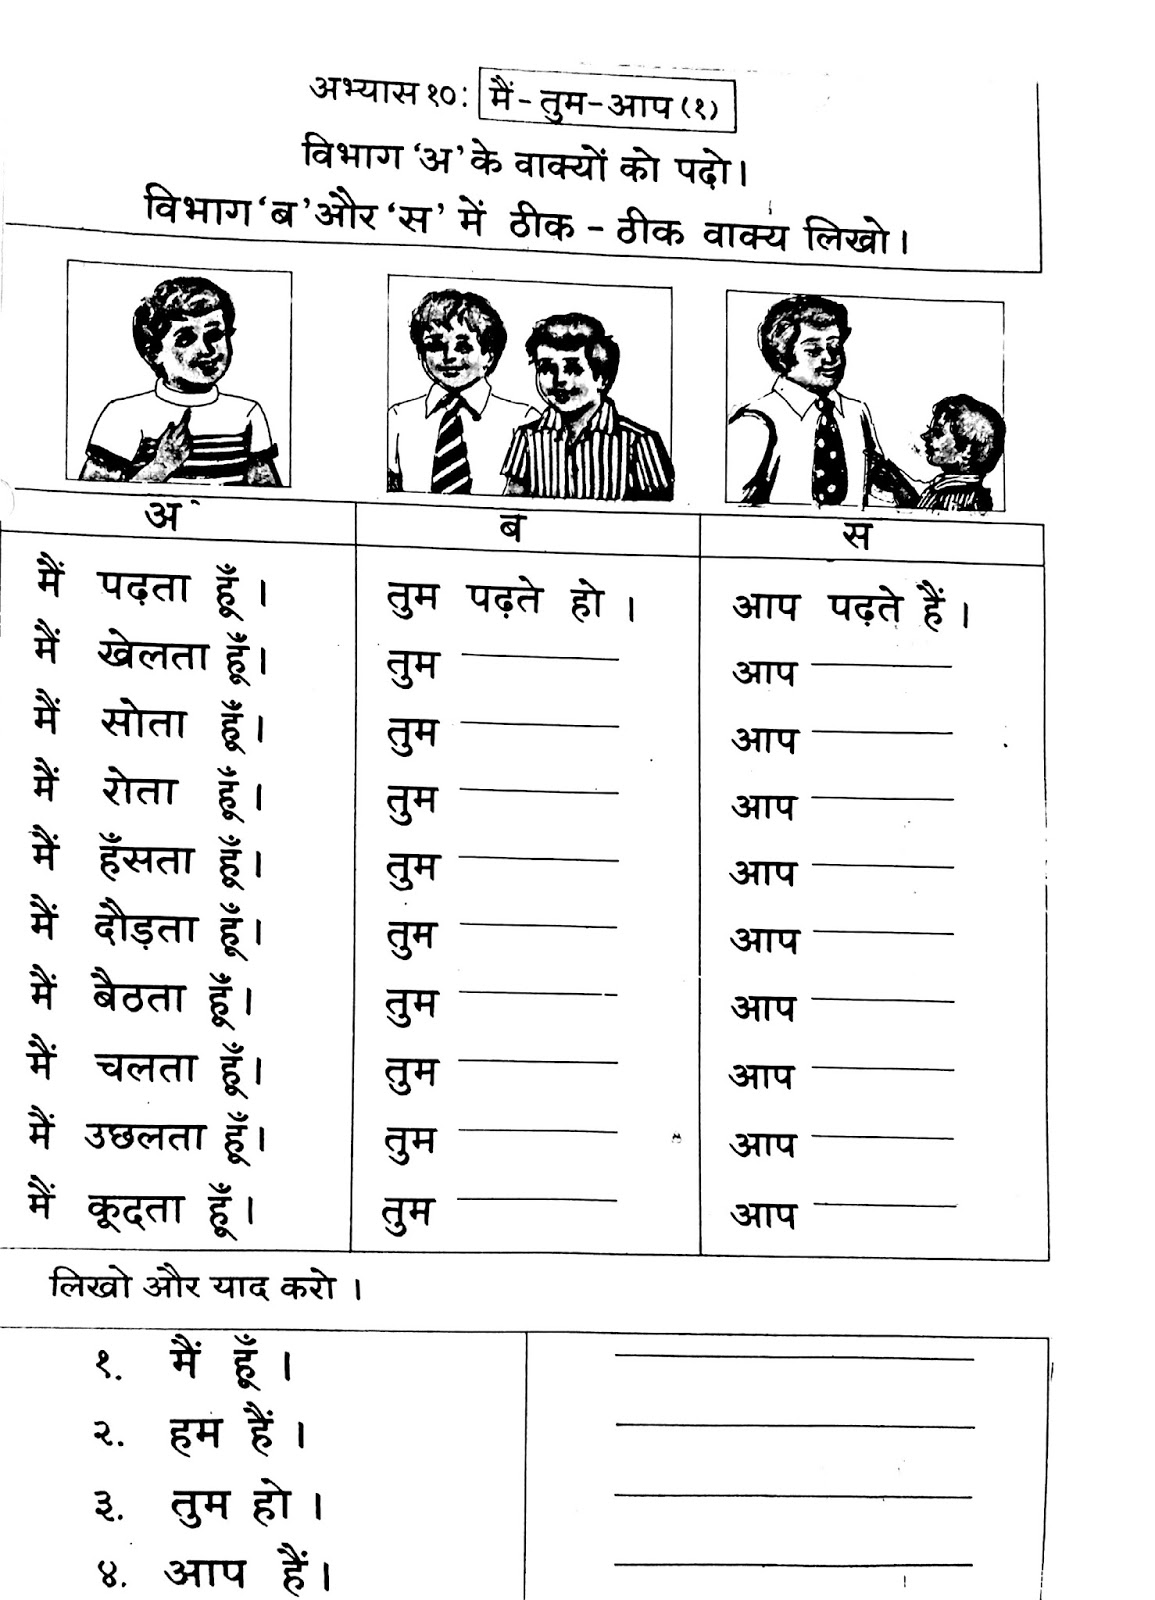 अभ्यास १०: मैं - तुम - आप (१)
विभाग ‘अ’ के वाक्यों को पढ़ो।
विभाग ‘ब’ और ‘स’ में ठीक - ठीक वाक्य लिखो।
अ ब स
मैं पढ़ता हूँ। तुम पढ़ते हो। आप पढ़ते हैं।
मैं खेलता हूँ। तुम ________ आप ________
मैं सोता हूँ। तुम ________ आप ________
मैं रोता हूँ। तुम ________ आप ________
मैं हँसता हूँ। तुम ________ आप ________
मैं दौड़ता हूँ। तुम ________ आप ________
मैं बैठता हूँ। तुम ________ आप ________
मैं चलता हूँ। तुम ________ आप ________
मैं उछलता हूँ। तुम ________ आप ________
मैं कूदता हूँ। तुम ________ आप ________
लिखो और याद करो।
१. मैं हूँ। ________
२. हम हैं। ________
३. तुम हो। ________
४. आप हैं। ________